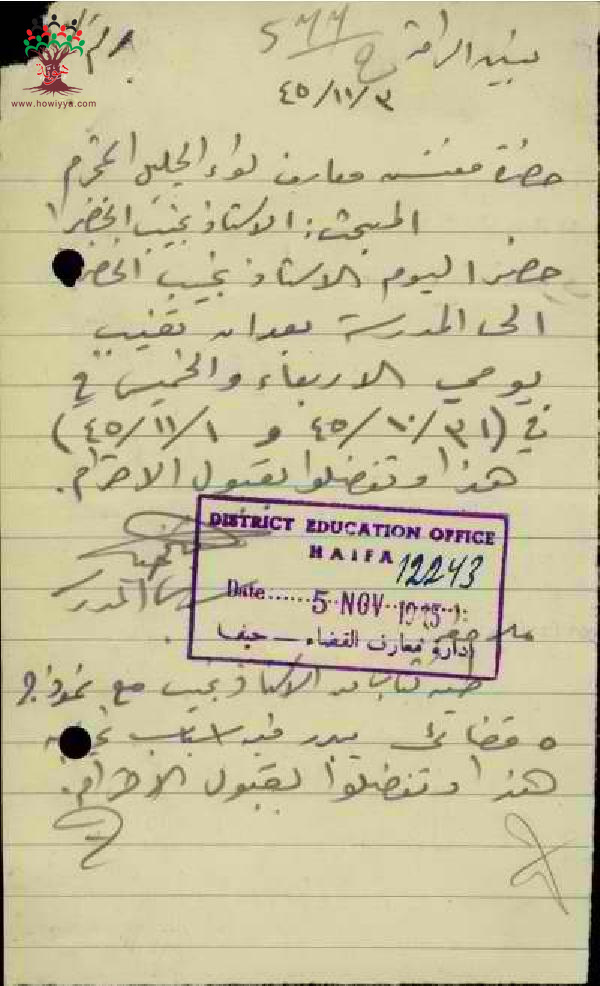 www.howiyya.com
٤٥/١١/٣
حضرة مفتش معارف لواء الجليل المحترم
المبحث: الاستاذ نجيب الخضرا
حضر اليوم الاستاذ نجيب الخضرا
الى المدرسة بعد ان تغيب
يومي الاربعاء والخميس في
في (٤٥/١٠/٣١ و ٤٥/١١/١)
هذا وتفضلوا بقبول الاحترام.
DISTRICT EDUCATION OFFICE
HAIFA
12243
Date...... 5 NOV
المدرسة
ادارة معارف القضاء — حيفا
طيه كتاب من الاستاذ نجيب مع
هذا وتفضلوا بقبول الاحترام.